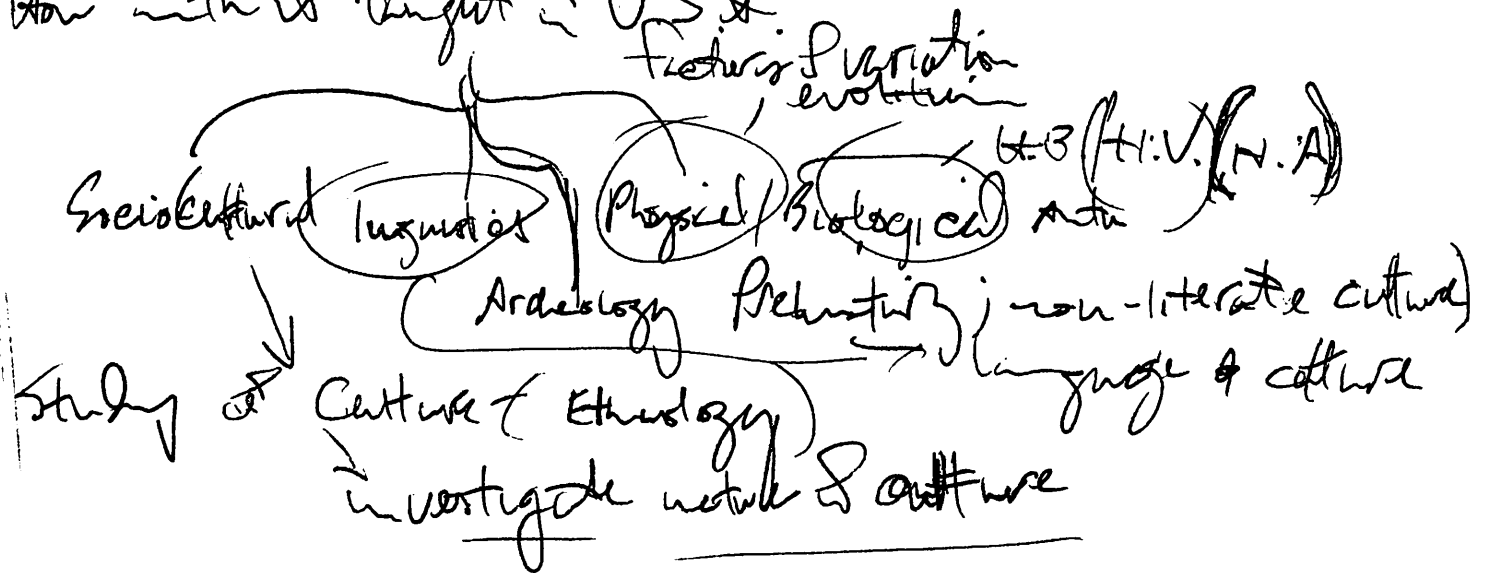 How anth is taught in U.S.A
Factors of variation
evolution
H.B (H.V.) (N.A)
Sociocultural linguistics Physical/Biological Anth
Archeology Prehistory (non-literate culture)
language & culture
Study of Culture (Ethnology)
investigate nature of culture